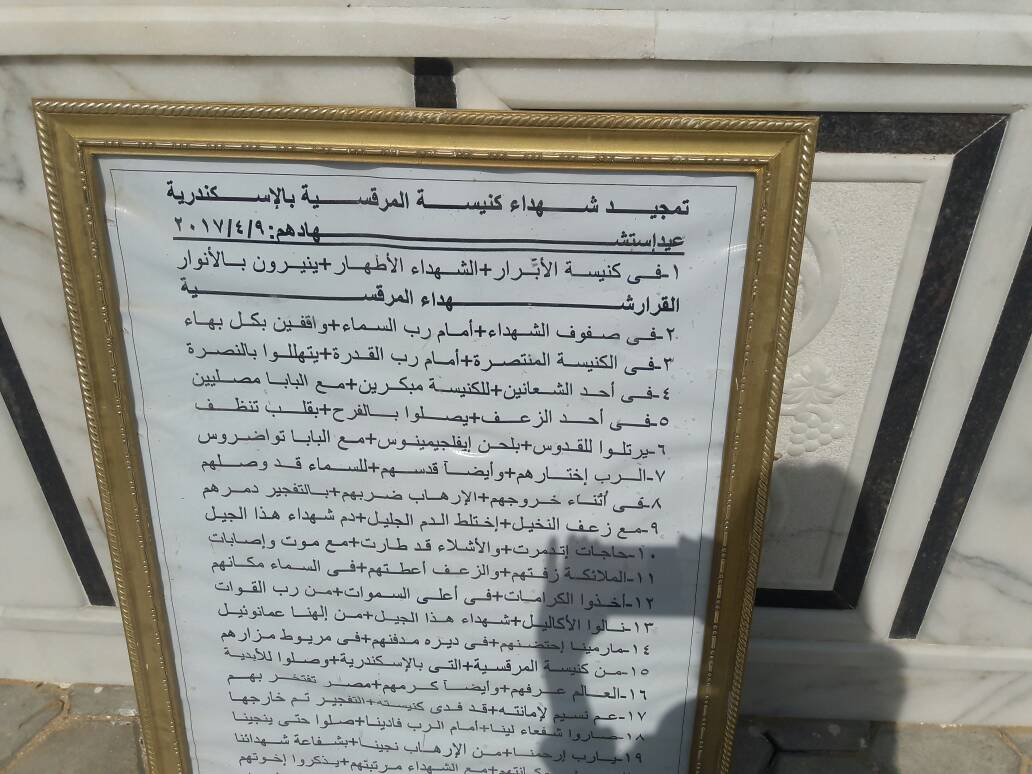 تمجيد شهداء كنيسة المرقسية بالإسكندرية
عيد إستشهادهم: ٢٠١٧/٤/٩
١-فى كنيسة الأبّرار+الشهداء الأطهار+ينيرون بالأنوار
القرارشهداء المرقسية
٢-فى صفوف الشهداء+أمام رب السماء+واقفين بكل بهاء
٣-فى الكنيسة المنتصرة+أمام رب القدرة+يتهللوا بالنصرة
٤-فى أحد الشعانين+للكنيسة مبكرين+مع البابا مصليين
٥-فى أحد الزعف+يصلوا بالفرح+بقلب تنظف
٦-يرتلوا للقدوس+بلحن إيفلجيمينوس+مع البابا تواضروس
٧-الرب إختارهم+وأيضآ قدسهم+للسماء قد وصلهم
٨-فى أثناء خروجهم+الإرهاب ضربهم+بالتفجير دمرهم
٩-مع زعف النخيل+إختلط الدم الجليل+دم شهداء هذا الجيل
١٠-حاجات إتدمرت+والأشلاء قد طارت+مع موت وإصابات
١١-الملائكة زفتهم+والزعف أعطتهم+فى السماء مكانهم
١٢-أخذوا الكرامات+فى أعلى السموات+من رب القوات
١٣-نالوا الأكاليل+شهداء هذا الجيل+من إلهنا عمانوئيل
١٤-مارمينا إحتضنهم+فى ديره مدفنهم+فى مريوط مزارهم
١٥-من كنيسة المرقسية+التى بالإسكندرية+وصلوا للأبدية
١٦-العالم عرفهم+وأيضآ كرمهم+مصر تفتخر بهم
١٧-عم نسيم لأمانته+قد فدى كنيسته+التفجير تم خارجها
١٨-صاروا شفعاء لينا+أمام الرب فادينا+صلوا حتى ينجينا
١٩-يارب إرحمنا+من الإرهاب نجينا+بشفاعة شهدائنا
+مع الشهداء مرتبتهم+يذكروا إخوتهم